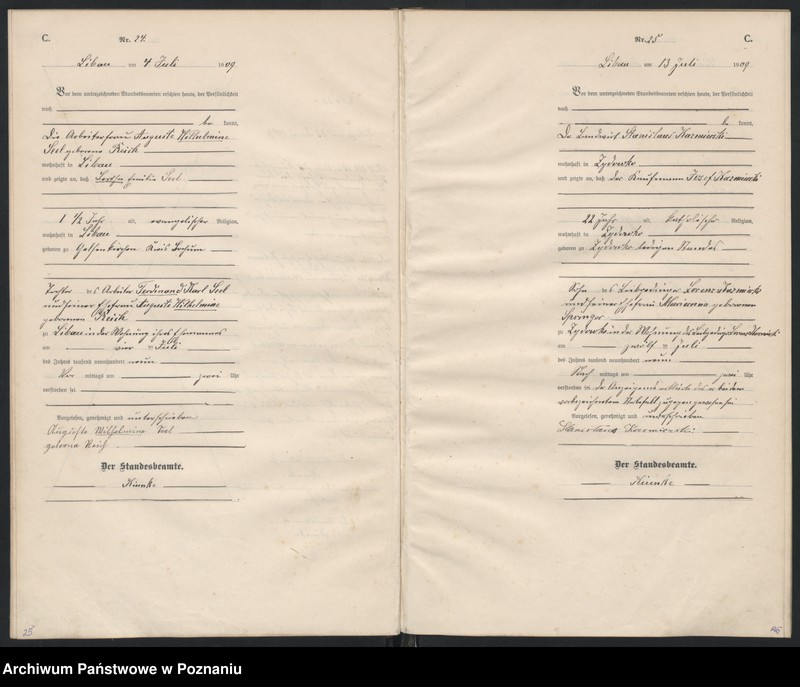 C.
Nr. 24.
Libau am 4 Juli 1909
Vor dem unterzeichneten Standesbeamten erschien heute, der Persönlichkeit
nach
be kannt,
Die Arbeiterfrau Auguste Wilhelmine
Seel geborene Reich
wohnhaft in Libau
und zeigte an, daß Emilie Seel
1 1/2 Jahr alt, evangelischer Religion,
wohnhaft in Libau
geboren zu Gelsenkirchen Kreis Bochum
Tochter des Arbeiter Ferdinand Karl Seel
und seiner Ehefrau Auguste Wilhelmine
geborenen Reich
zu Libau in der Wohnung ihres Ehemannes
am vier ten Juli
des Jahres tausend neunhundert neun
Vor mittags um zwei Uhr
verstorben sei
Vorgelesen, genehmigt und unterschrieben
Auguste Wilhelmine Seel
geborne Reich
Der Standesbeamte.
25
C.
Nr. 25
Libau am 13 Juli 1909
Vor dem unterzeichneten Standesbeamten erschien heute, der Persönlichkeit
nach
be kannt,
Der Landwirt Stanislaus
wohnhaft in Zydowko
und zeigte an, daß der Kaufmann Jozef
22 Jahr alt, katholischer Religion,
wohnhaft in Zydowko
geboren zu Zydowko ledigen Standes
Sohn des Lorenz
und seiner Ehefrau Marianna geborenen
Springer
zu Zydowko in der Wohnung des
am zwölf ten Juli
des Jahres tausend neunhundert neun
Nach mittags um zwei Uhr
verstorben sei der Anzeigende erklärte das er bei dem
vorbezeichneten Sterbefall zugegen gewesen sei
Vorgelesen, genehmigt und unterschrieben
Stanislaus
Der Standesbeamte.
Archiwum Państwowe w Poznaniu